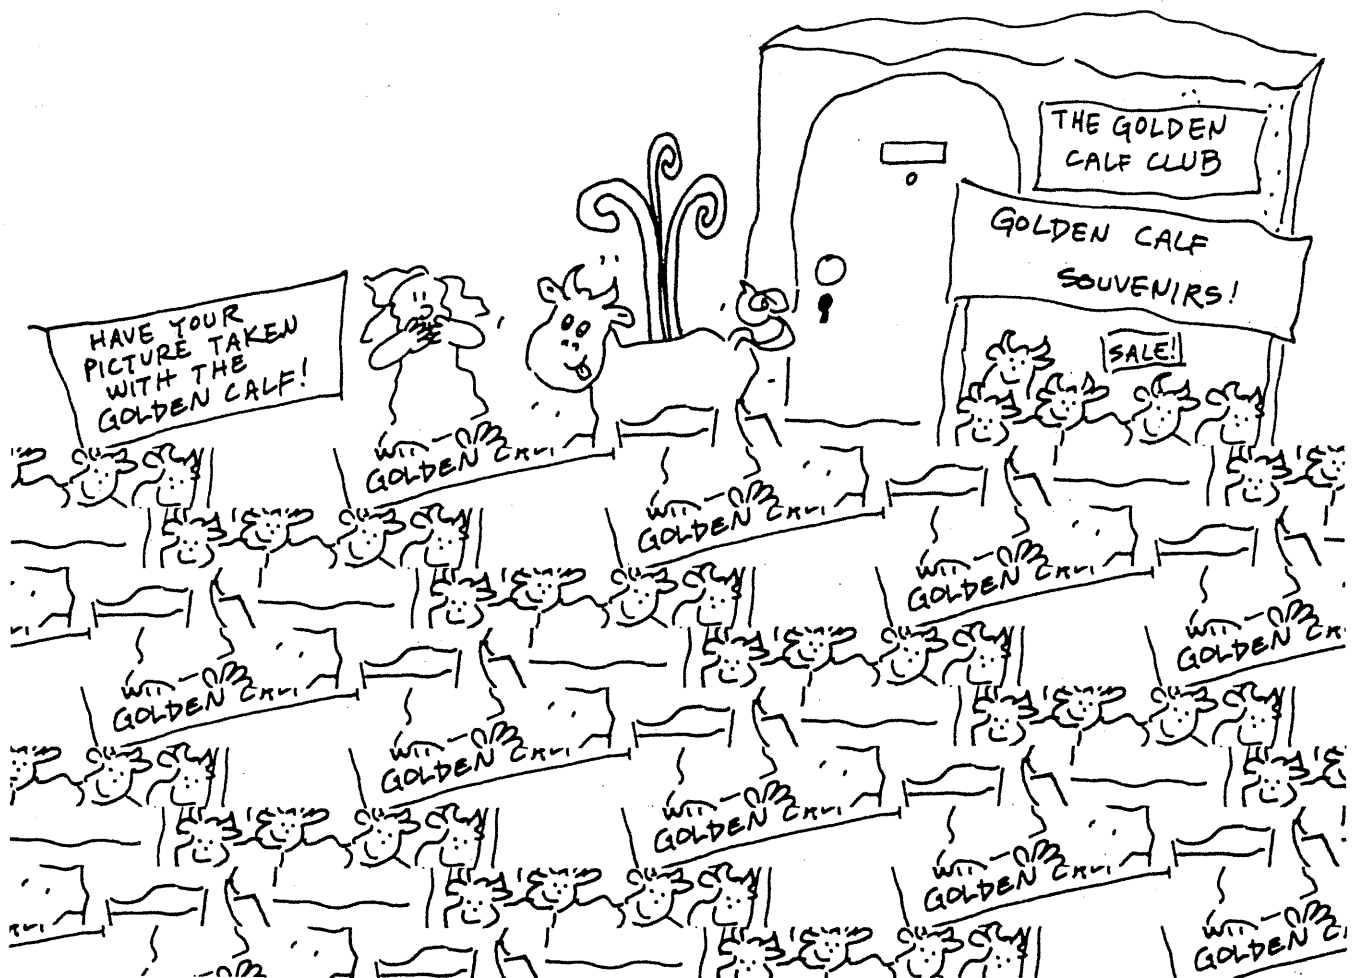 THE GOLDEN
CALF CLUB
GOLDEN CALF
SOUVENIRS!
SALE!
HAVE YOUR
PICTURE TAKEN
WITH THE
GOLDEN CALF!
GOLDEN
GOLDEN
GOLDEN
GOLDEN
GOLDEN
GOLDEN
GOLDEN
GOLDEN
GOLDEN